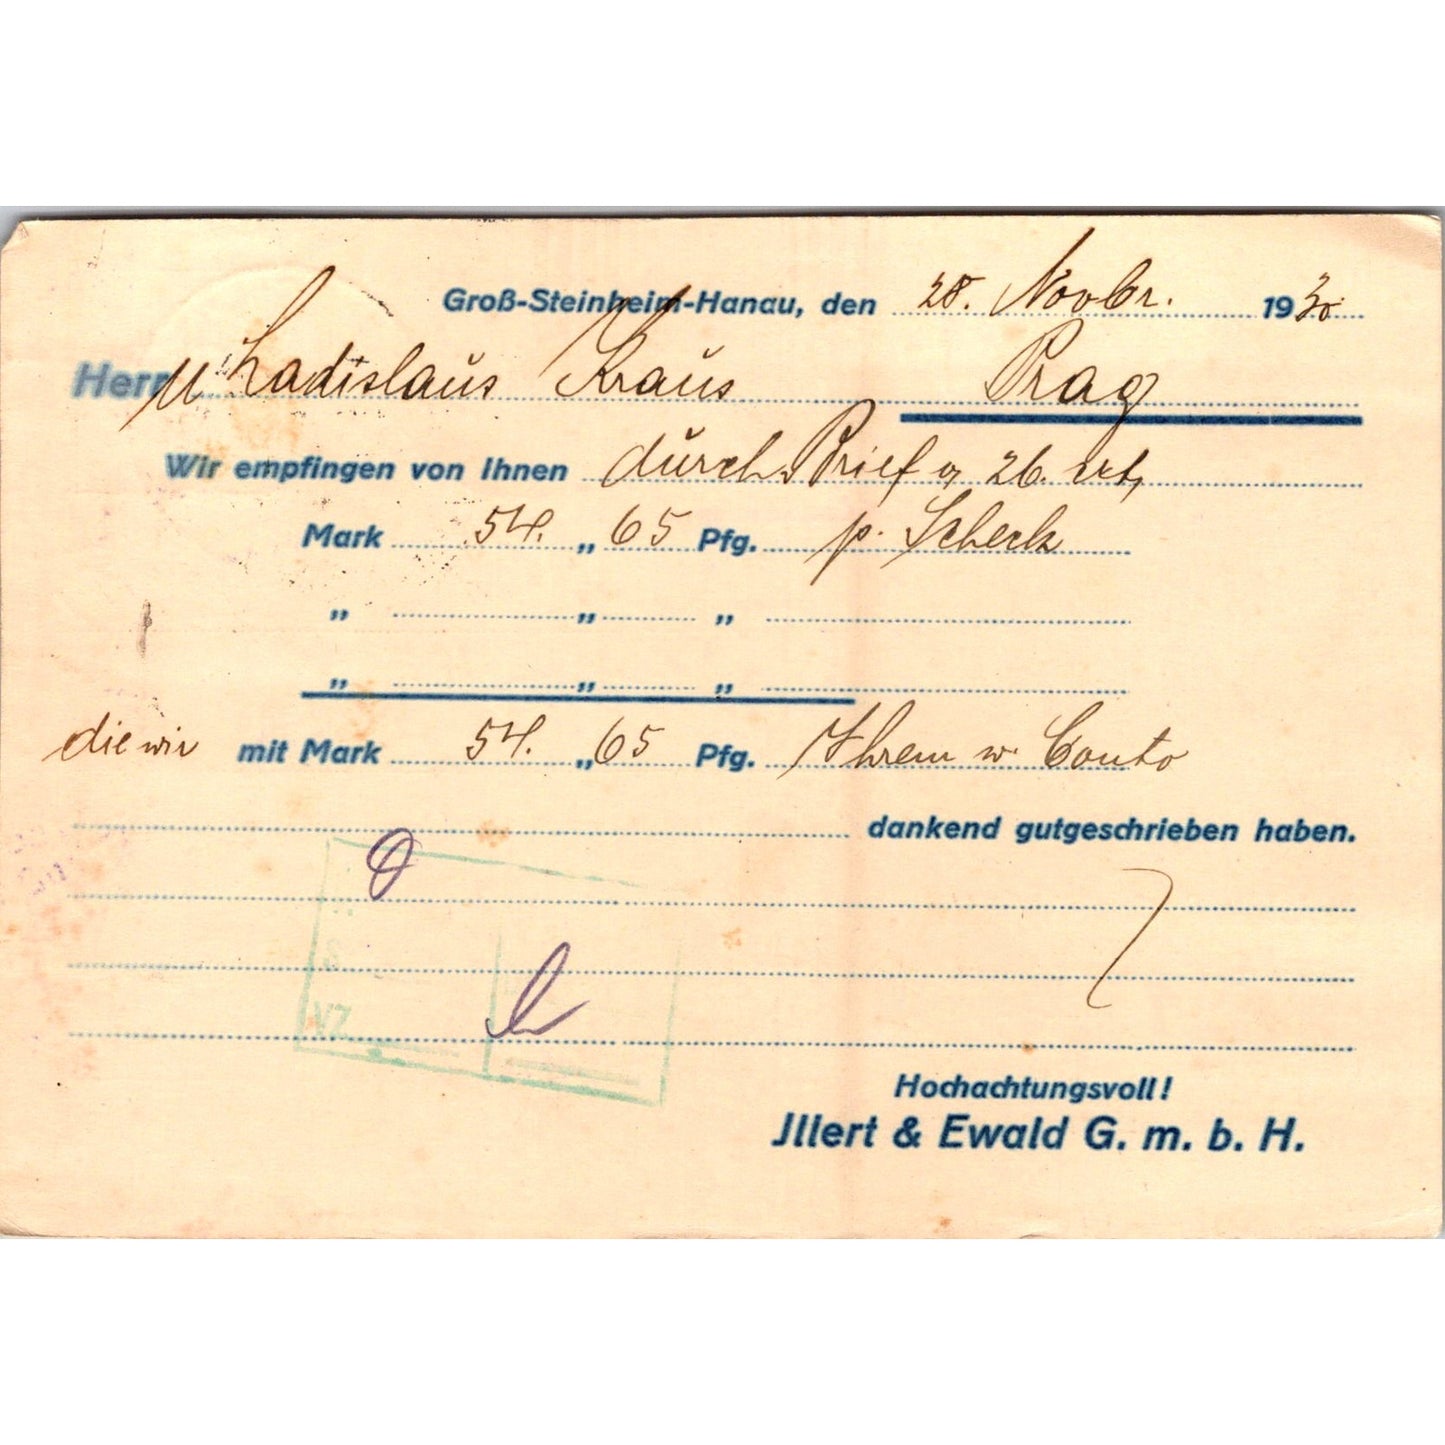 Groß-Steinheim-Hanau, den 28. Novbr. 1930
Herrn Ladislaus Kraus Prag
Wir empfingen von Ihnen durch Brief v. 26. crt,
Mark 54. „ 65 Pfg. p. Scheck
„ „ „
„ „ „
die wir mit Mark 54. „ 65 Pfg. Ihrem w. Conto
dankend gutgeschrieben haben.
VZ
Hochachtungsvoll!
Jllert & Ewald G. m. b. H.